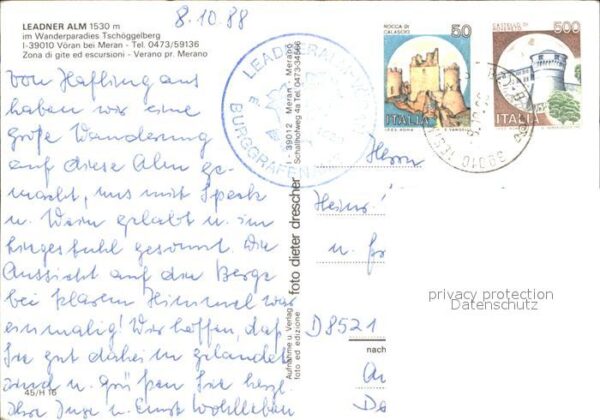 8.10.88
LEADNER ALM 1530 m
im Wanderparadies Tschöggelberg
I-39010 Vöran bei Meran - Tel. 0473/59136
Zona di gite ed escursioni - Verano pr. Merano
Von Hafling aus
haben wir eine
große Wanderung
auf diese Alm ge-
macht, uns mit Speck
u. Wein gelabt u. im
Liegestuhl gesonnt. Die
Aussicht auf die Berge
bei klarem Himmel war
einmalig! Wir hoffen, daß
Sie gut daheim gelandet
sind u. grüßen Sie herzl.
Ihre Inge u. Ernst Wohlleben
45/H 16
LEADNERALM
BURGGRAFEN
Aufnahme u. Verlag
foto ed edizione
foto dieter drescher
I - 39012 Meran - Merano
Schallhofweg 4a Tel. 0473-34566
ROCCA DI
CALASCIO
50
ITALIA
CASTELLO DI
ROVERETO
500
ITALIA
39010
Herrn
Heinz
u.
D8521
nach
privacy protection
Datenschutz